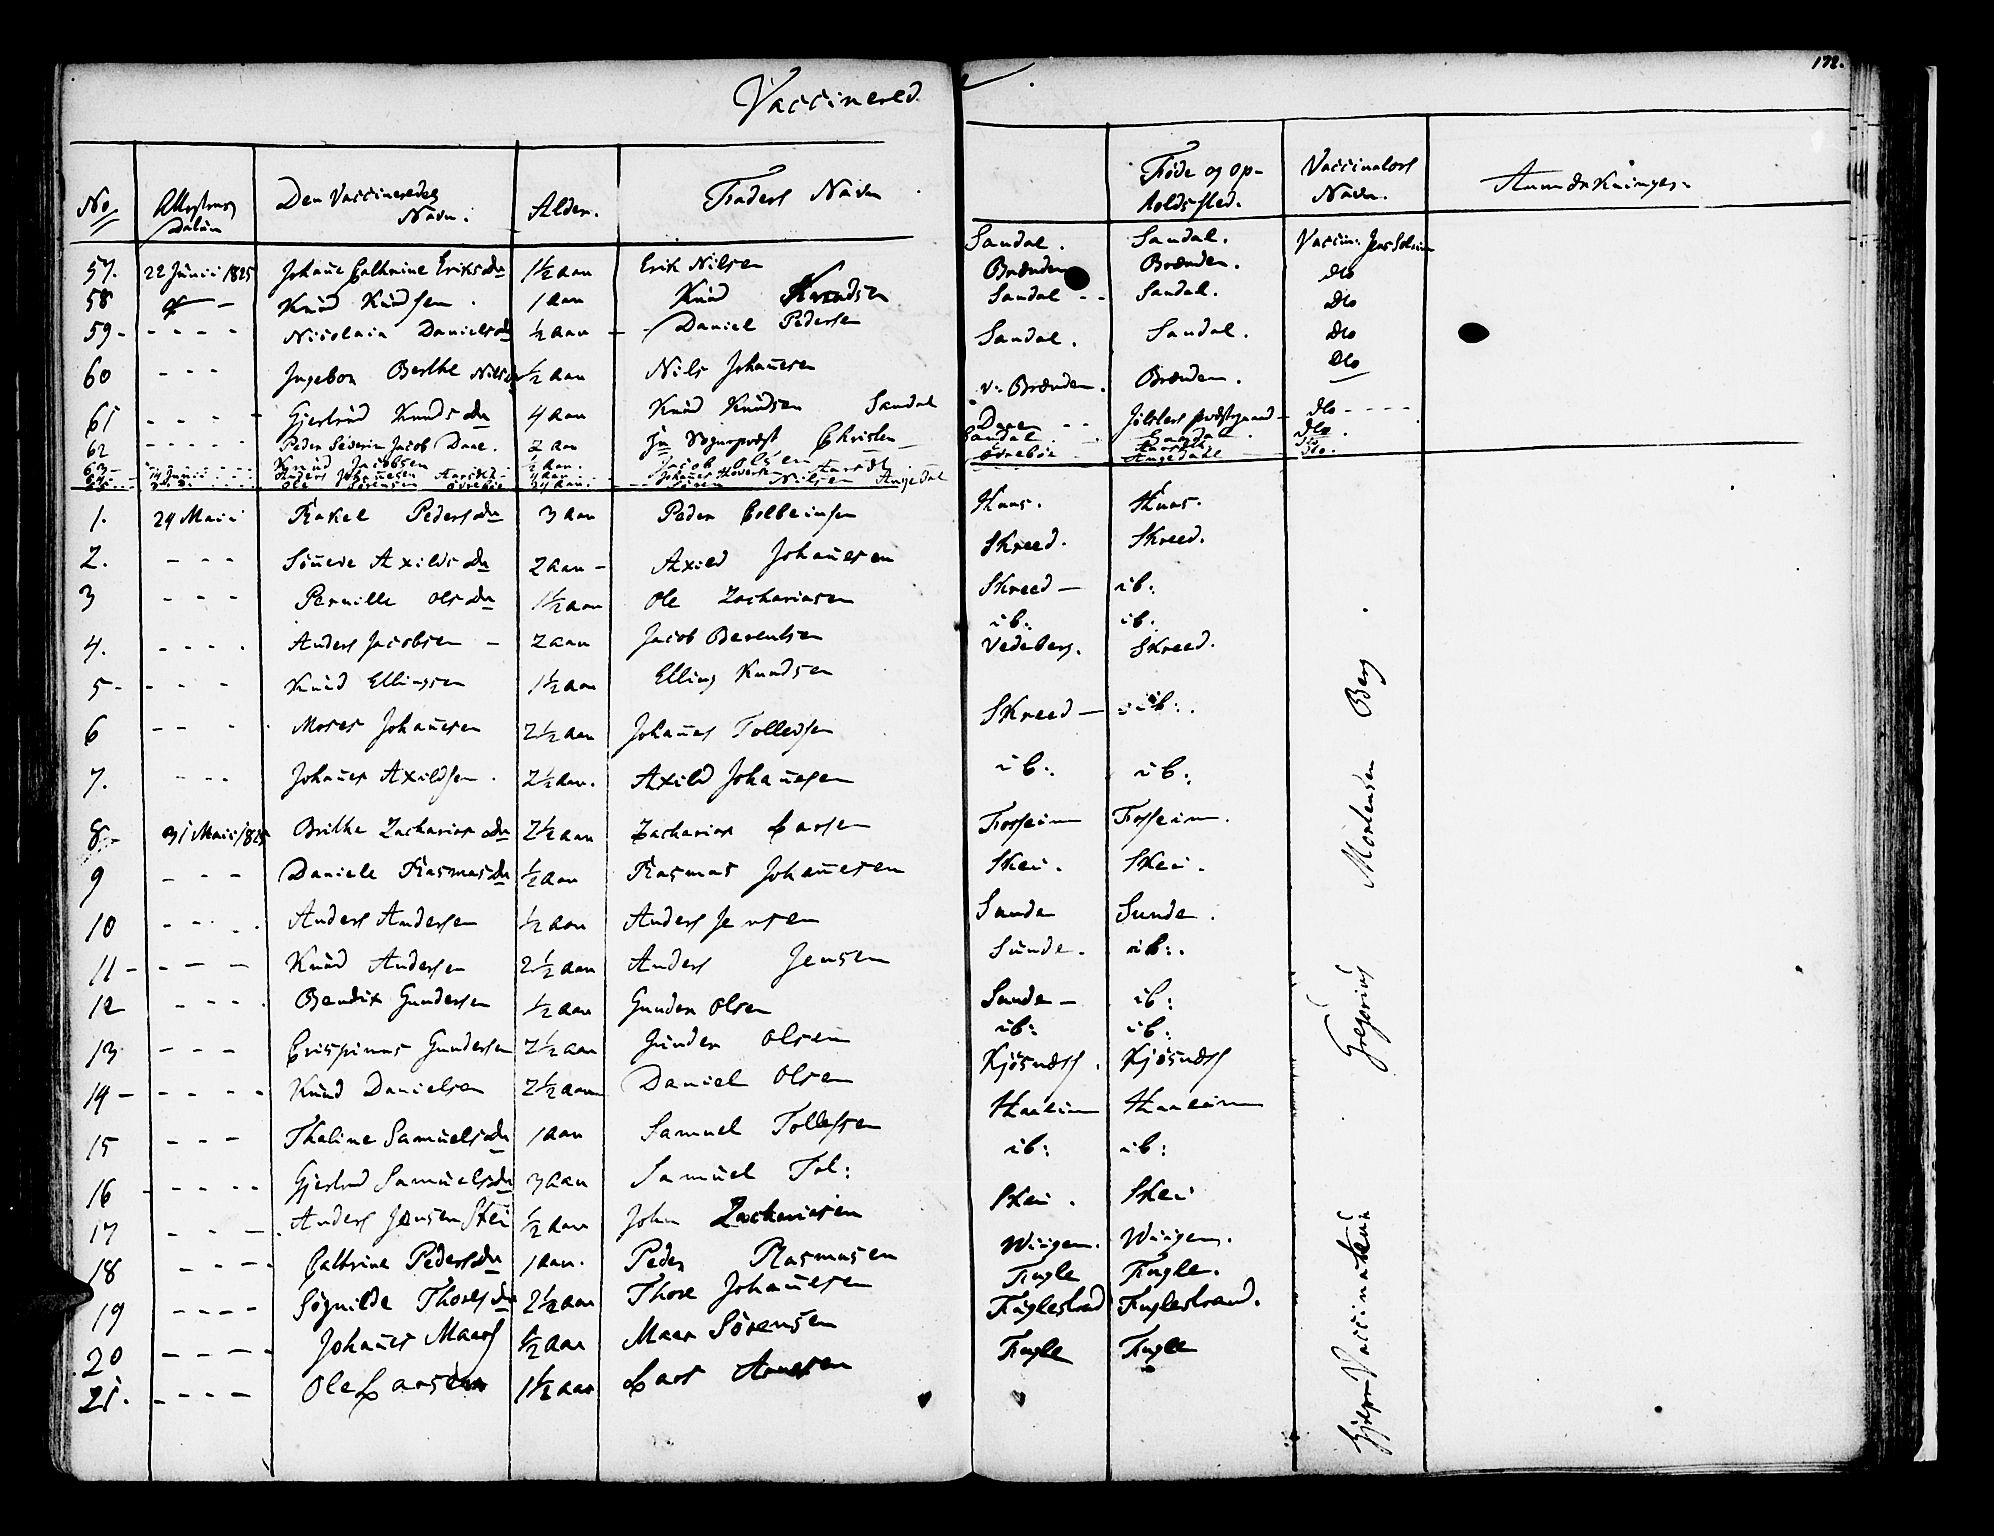 Vaccinered
172.
No
Attestens Datum
Den Vaccineredes Navn.
Alder.
Faders Navn
Føde og Op-
holdssted.
Vaccinators Navn.
Anmærkninger
57. 22 Junii 1825 Johane Cathrine Eriksdr 1½ aar Erik Nilsen Sandal. Sandal. Vaccin:
58 Knud Knudsen 1 aar Knud Knudsen Brænden Brænden. dto
59 - - - - Nicolaia Danielsdr ½ aar Daniel Pedersen Sandal - - Sandal. Dto
60 - - - Ingebor Berthe Nilsdr ½ aar Nils Johannesen Sandal. Sandal. dto
61 - - - - Gjertrud Knudsdr 4 aar Knud Knudsen Sandal v: Brænden. Brænden. dto
62 - - - - - Peder Severin Jacob Daae. 2 aar Hr Sogneprest Christen Daae - - Jølsters præstegaard - dto - - - -
63 - - - - Knud Jacobsen ½ aar. Jacob Olsen Sandal Sandal dto.
64 14 Junii Anders Johannesen Aardal ½ aar Johannes Aardal
Ole Sørensen Nilsen Angedal Øvrebøe Angedal dto.
1. 24 Maii Rakel Pedersdr 3 aar Peder Colbeinsen Huus. Huus.
2. - - - Axildsdr 2 aar - Axild Johannesen Skreed. Skreed.
3 - - - Pernille Olsdr 1½ aar Ole Zachariasen Skreed - ib:
4. - - - - Anders Jacobsen - 2 aar Jacob Berentsen ib: ib:
5 - - - - Knud Ellingsen 1½ aar Elling Knudsen Vedeberg. Skreed.
6 - - - Moses Johannesen 2½ aar Johannes Tollevsen Skreed - ib:.
7. - - - Johannes Axildsen. 2½ aar. Axild Johannesen ib: ib:
8 - 31 Maii 1825 Brithe Zachariasdr 2½ aar Zacharias Larsen Fosseim Fosseim.
9 - - - Daniele Rasmusdr ½ aar Rasmus Johannesen Skei. Skei.
10 - - - - Anders Andersen ½ aar Anders Jensen Sunde Sunde.
11 - - - - Knud Andersen 2½ aar Anders Jensen Sunde. ib:.
12 - - - - Bendix Gundersen ½ aar Gunder Olsen Sunde - ib:
13 - - - Crispinus Gundersen 2½ aar Gunder Olsen ib: ib:
14 - - - - - Knud Danielsen 2½ aar Daniel Olsen Kjøsnæss. Kjøsnæss
15 - - - Thaline Samuelsdr 1 aar Samuel Tollefsen Haaheim Haaheim
16 - - - - Gjertrud Samuelsdr 3 aar Samuel Tol: ib: ib:
17 - - - Anders Jensen Skei ½ aar John Zachariasen Skei. Skei
18 - - - - Cathrine Pedersdr 1 aar. Peder Rasmusen Wiigen. Wiigen.
19 - - - - Søgnilde Thoresdr 2½ aar Thore Johannesen Fugle Fugle.
20 - - - - Johannes Maars ½ aar Maar Sørensen Fuglestrand Fuglestrand.
21. - - - - Ole Larsen 1½ aar Lars Arnesen Fugle Fugle
Hjelpe Vaccinateur Gregorius Mortensen Berg.